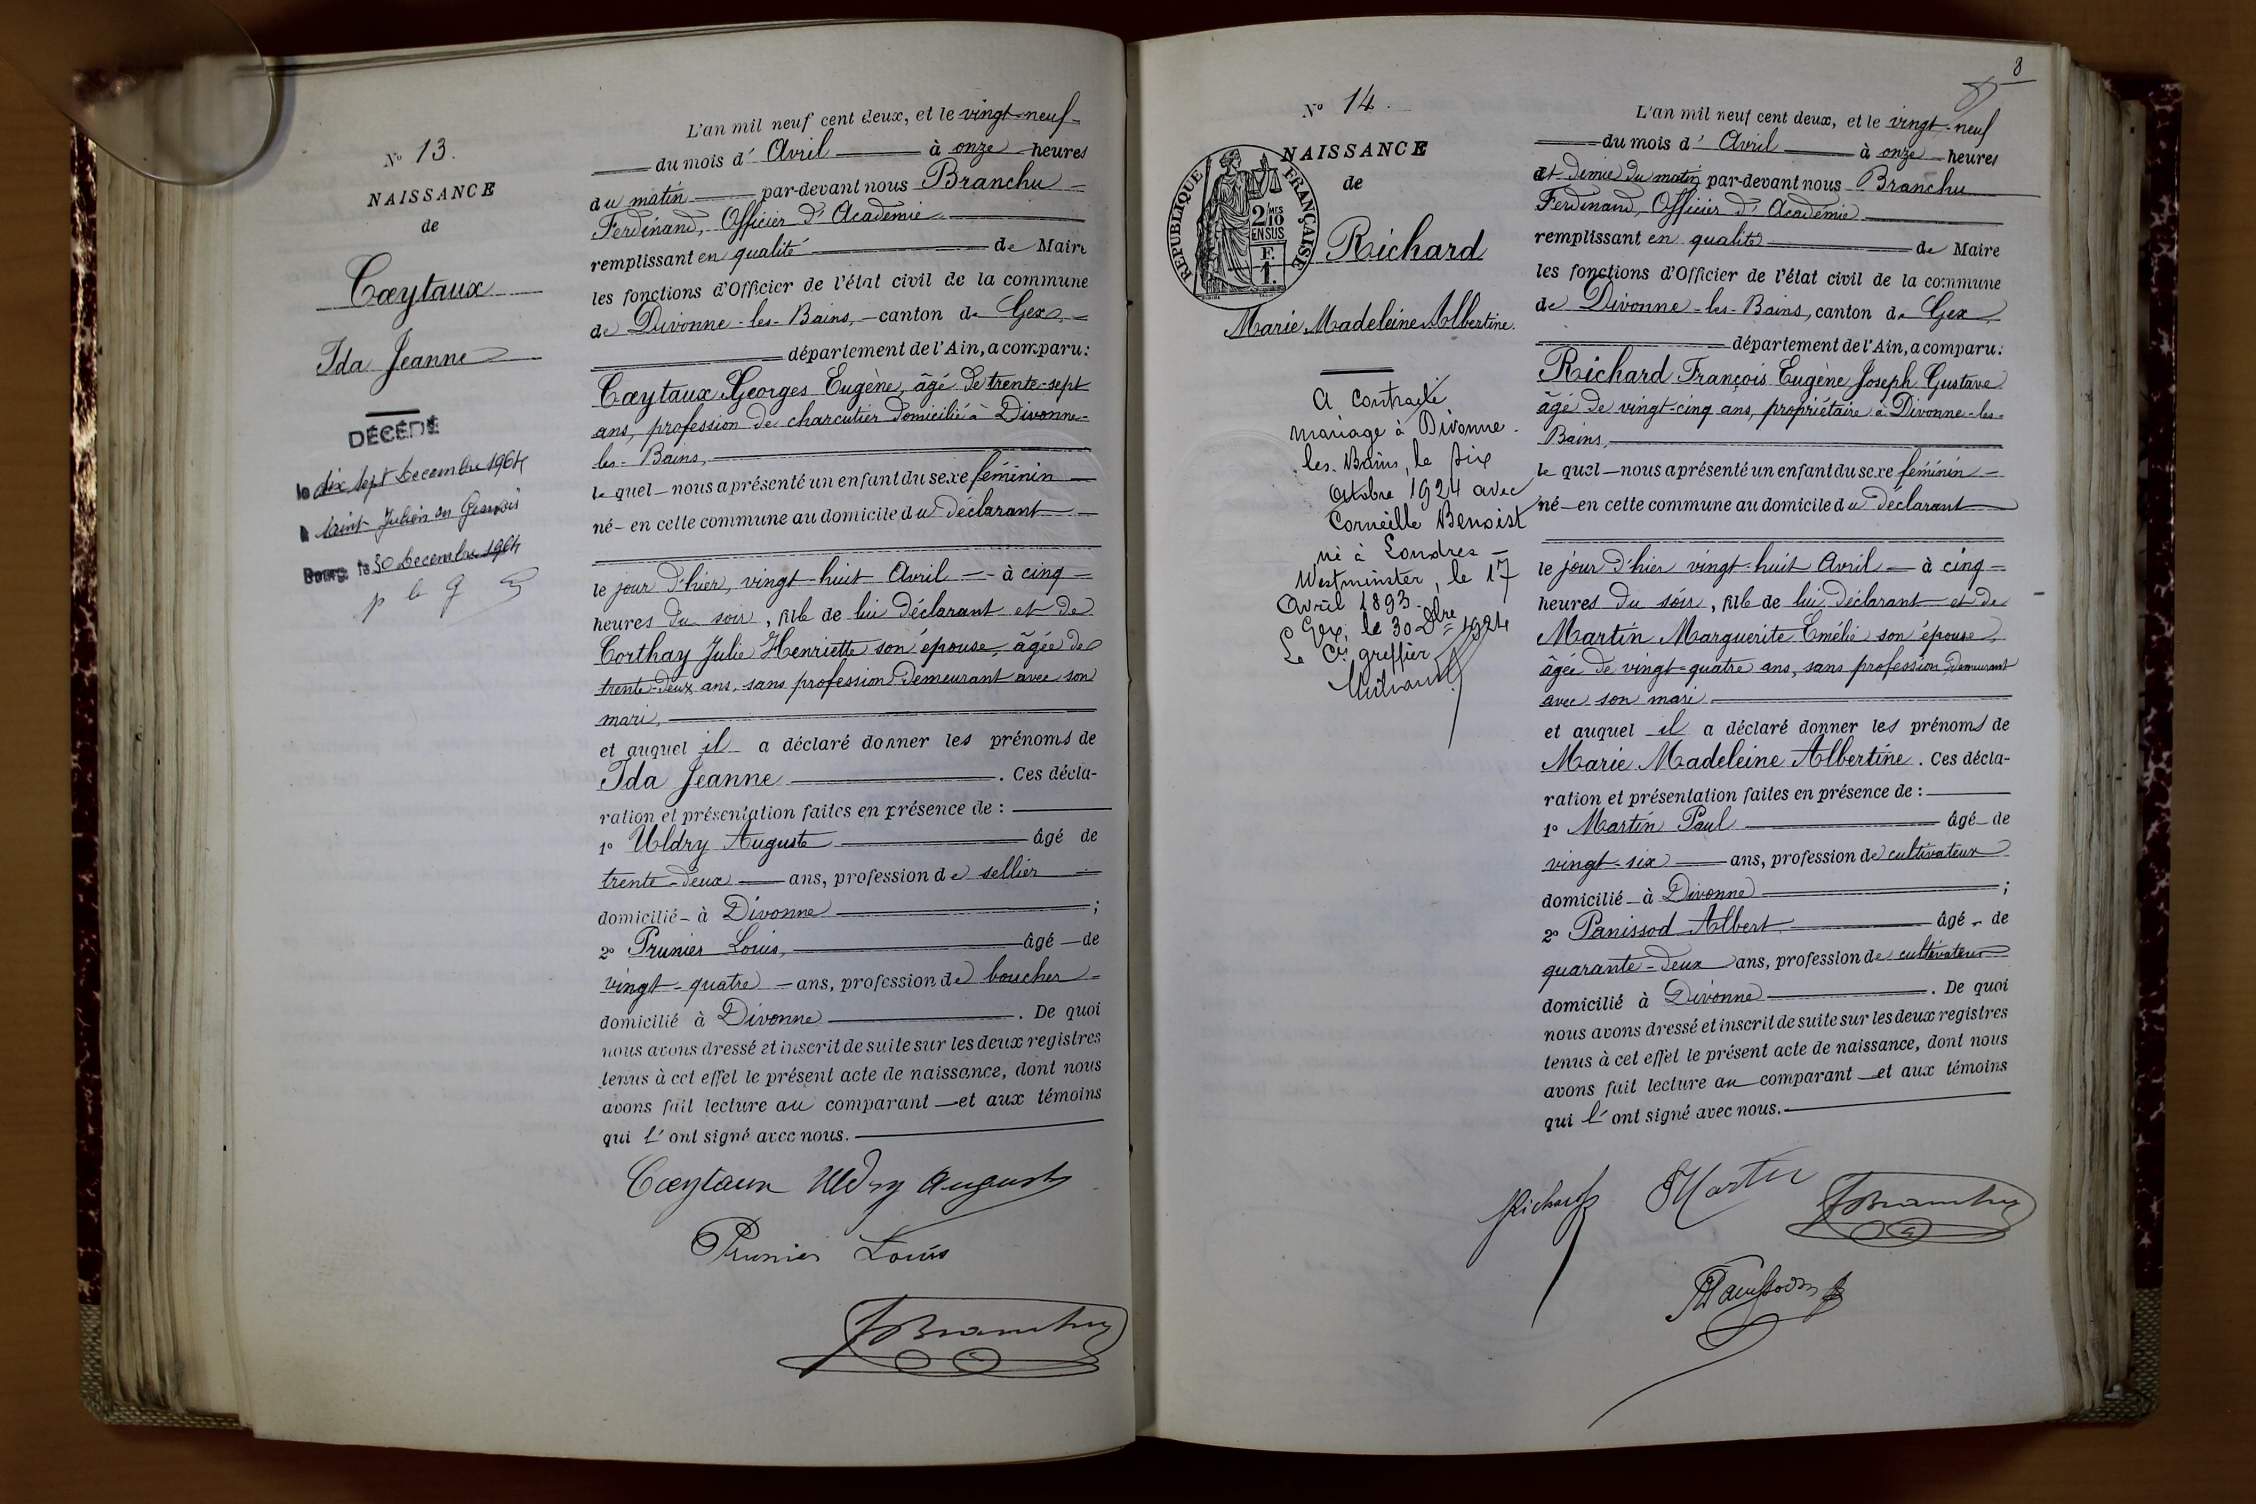 N° 13.
NAISSANCE
de
Cœytaux
Ida Jeanne
DÉCÉDÉ
le dix sept Decembre 1964
à Saint Julien en Genevois
Bourg, le 30 Decembre 1964
L'an mil neuf cent deux, et le vingt-neuf
du mois d' Avril à onze heures
du matin par-devant nous Branchu
Ferdinand, Officier d'Académie
remplissant en qualité de Maire
les fonctions d'Officier de l'état civil de la commune
de Divonne-les-Bains, canton de Gex,
département de l'Ain, a comparu:
Cœytaux Georges Eugène, âgé de trente-sept
ans, profession de charcutier domicilié à Divonne-
les-Bains,
le quel nous a présenté un enfant du sexe féminin
né en cette commune au domicile du déclarant
le jour d'hier, vingt-huit Avril à cinq
heures du soir, fille de lui déclarant et de
Corthay Julie Henriette son épouse, âgée de
trente-deux ans, sans profession demeurant avec son
mari,
et auquel il a déclaré donner les prénoms de
Ida Jeanne . Ces décla-
ration et présentation faites en présence de :
1° Uldry Auguste âgé de
trente-deux ans, profession de sellier
domicilié à Divonne ;
2° Prunier Louis, âgé de
vingt-quatre ans, profession de boucher
domicilié à Divonne . De quoi
nous avons dressé et inscrit de suite sur les deux registres
tenus à cet effet le présent acte de naissance, dont nous
avons fait lecture au comparant et aux témoins
qui l'ont signé avec nous.
Cœytaux Uldry Auguste
Prunier Louis
FBranchu
8
N° 14.
NAISSANCE
de
RÉPUBLIQUE FRANÇAISE
2/10 MES
EN SUS
F.
1.
Richard
Marie Madeleine Albertine.
A contracté
mariage à Divonne-
les-Bains, le six
Octobre 1924 avec
Corneille Benoist
né à Londres -
Westminster, le 17
Avril 1893.
Gex, le 30 8bre 1924
Le Cis greffier
L'an mil neuf cent deux, et le vingt-neuf
du mois d' Avril à onze heures
et demie du matin par-devant nous Branchu
Ferdinand, Officier d'Académie
remplissant en qualité de Maire
les fonctions d'Officier de l'état civil de la commune
de Divonne-les-Bains, canton de Gex
département de l'Ain, a comparu:
Richard François Eugène Joseph Gustave
âgé de vingt-cinq ans, propriétaire à Divonne-les-
Bains,
le quel nous a présenté un enfant du sexe féminin
né en cette commune au domicile du déclarant
le jour d'hier vingt-huit Avril à cinq
heures du soir, fille de lui déclarant et de
Martin Marguerite Emélie son épouse,
âgée de vingt-quatre ans, sans profession demeurant
avec son mari
et auquel il a déclaré donner les prénoms de
Marie Madeleine Albertine. Ces décla-
ration et présentation faites en présence de :
1° Martin Paul âgé de
vingt-six ans, profession de cultivateur
domicilié à Divonne ;
2° Panissod Albert âgé de
quarante-deux ans, profession de cultivateur
domicilié à Divonne . De quoi
nous avons dressé et inscrit de suite sur les deux registres
tenus à cet effet le présent acte de naissance, dont nous
avons fait lecture au comparant et aux témoins
qui l'ont signé avec nous.
Richard Martin FBranchu
Panissod